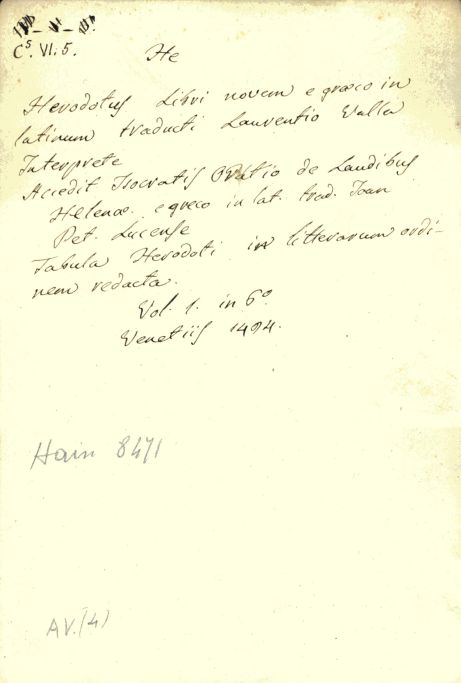 C⁵. VI. 5.
He
Herodotus Libri novem e græco in
latinum traducti Laurentio Valla
Interprete
Accedit Isocratis Oratio de Laudibus
Helenæ e greco in lat. trad. Joan
Pet. Lucense
Tabula Herodoti in litterarum ordi-
nem redacta.
Vol. 1. in 6°.
Venetiis 1494.
Hain 8471
AV. (4)